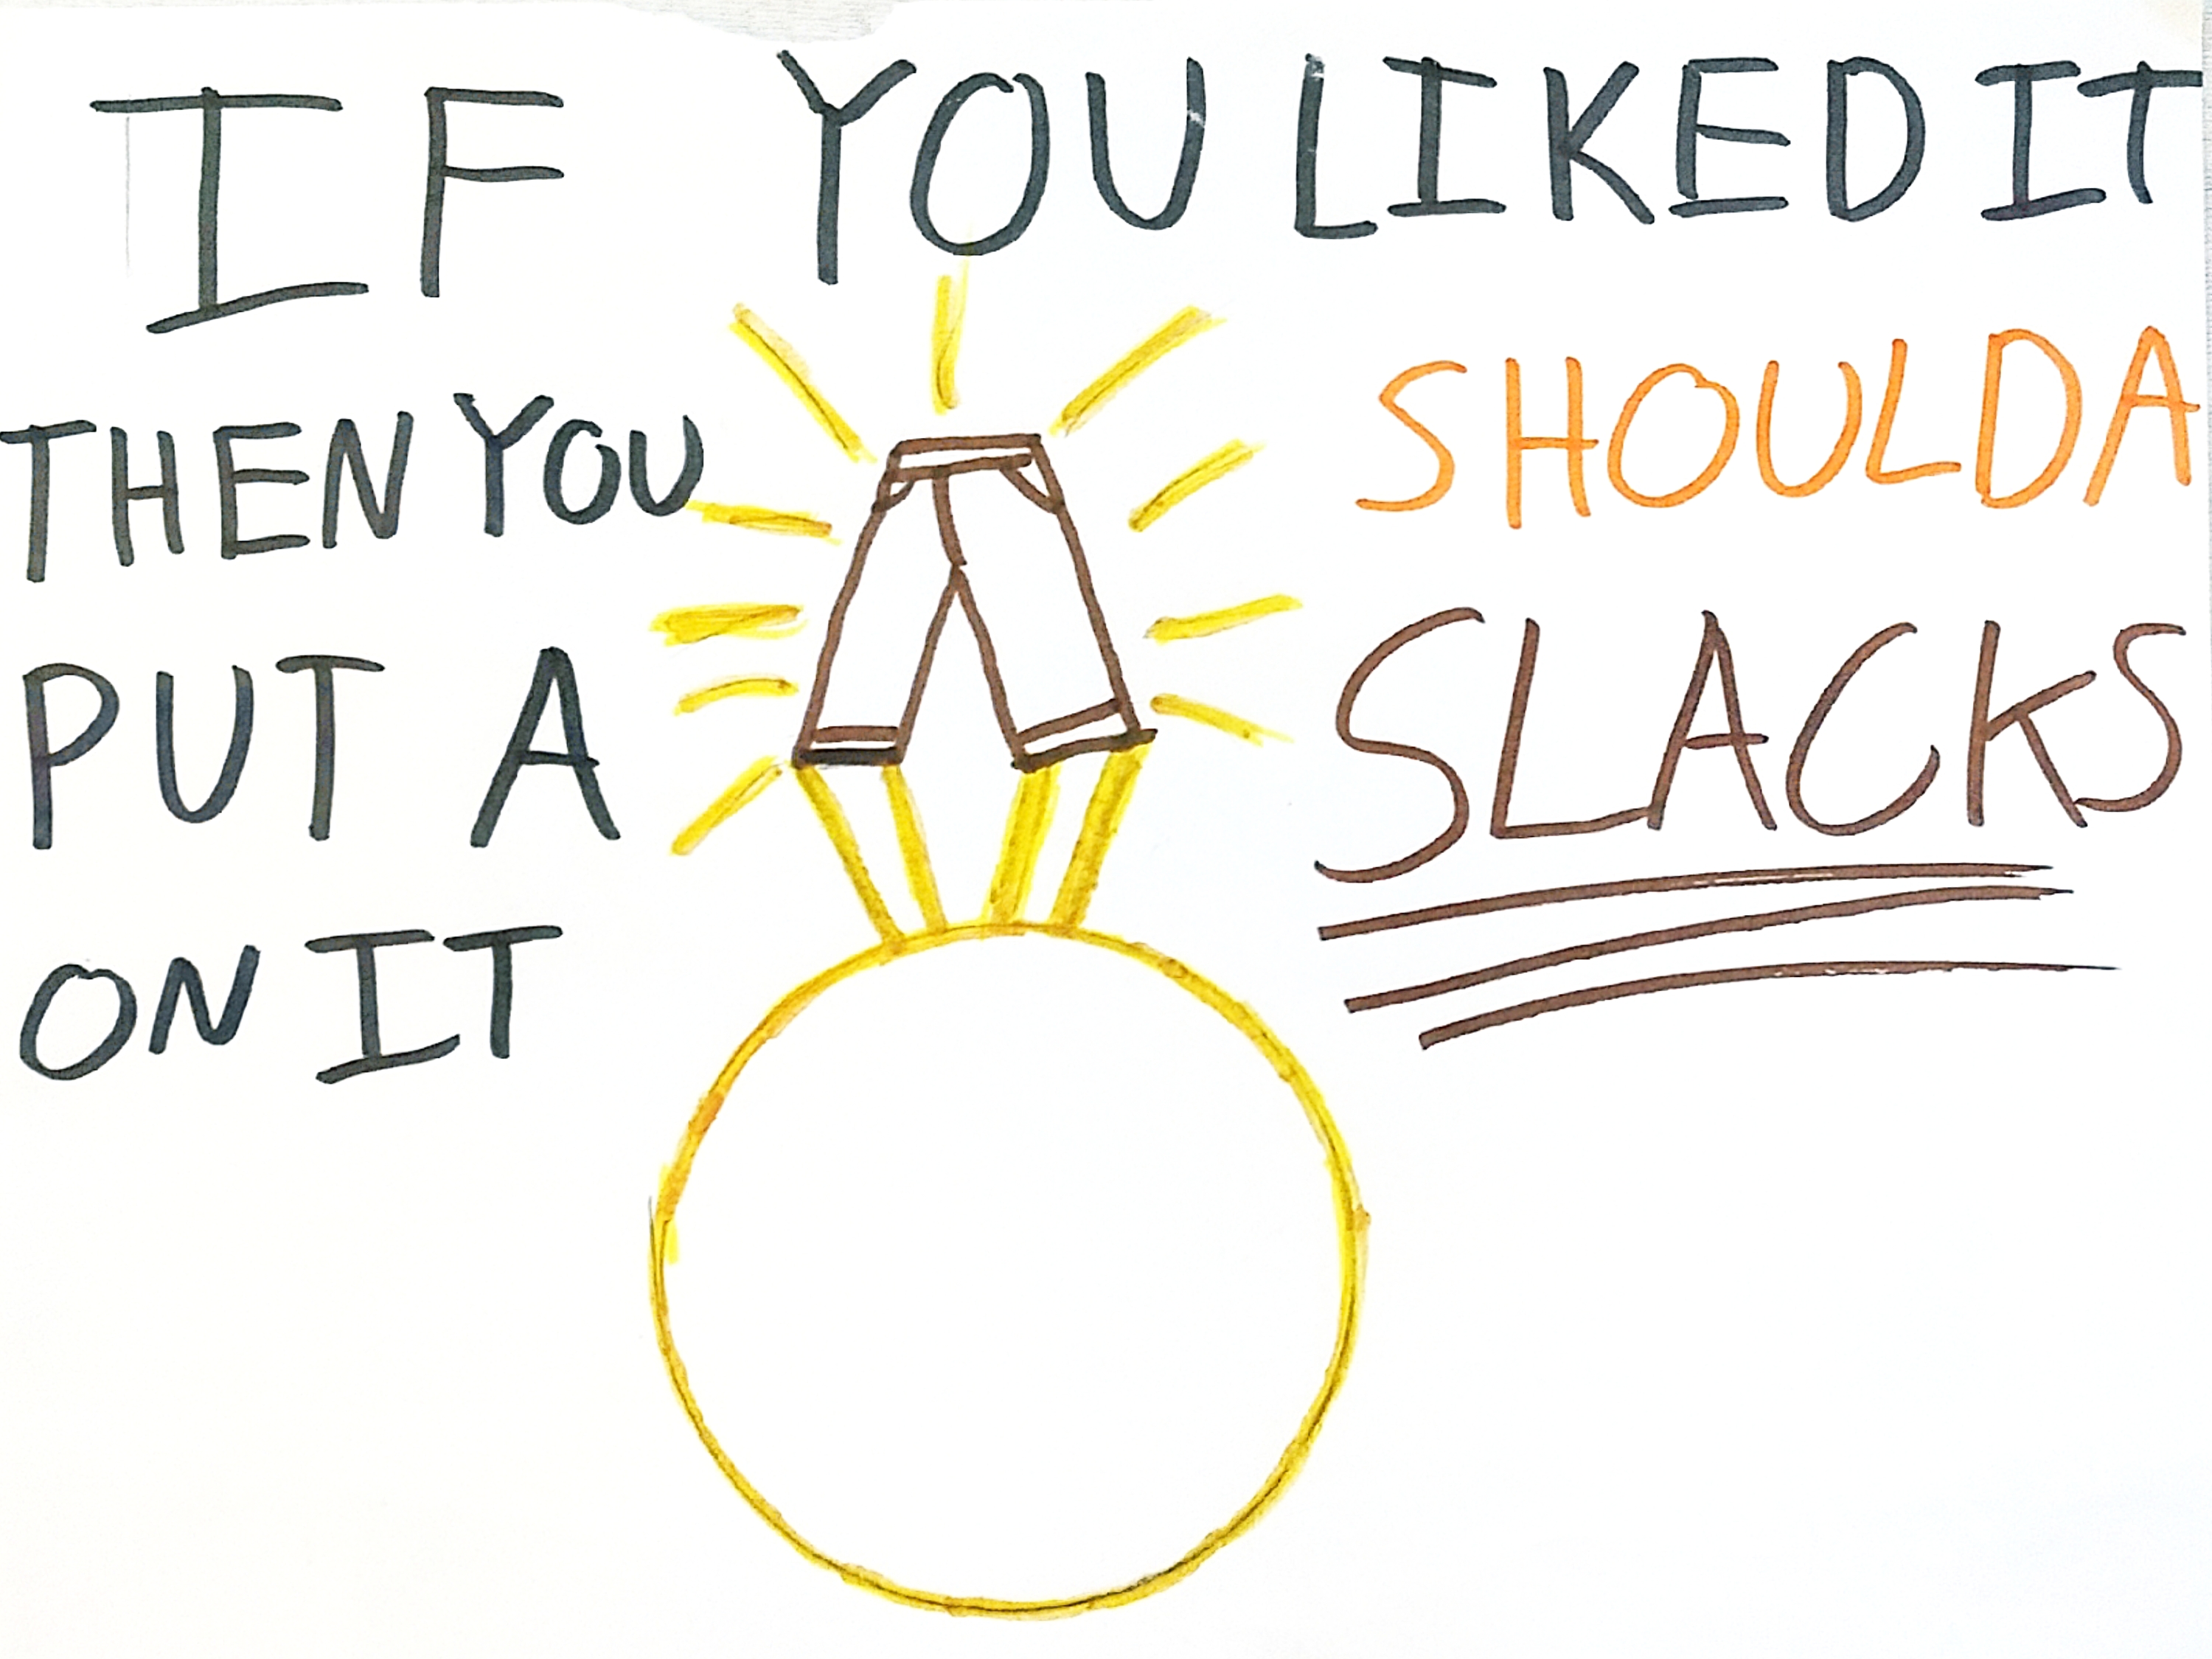 IF YOU LIKED IT
THEN YOU SHOULDA
PUT A SLACKS
ON IT